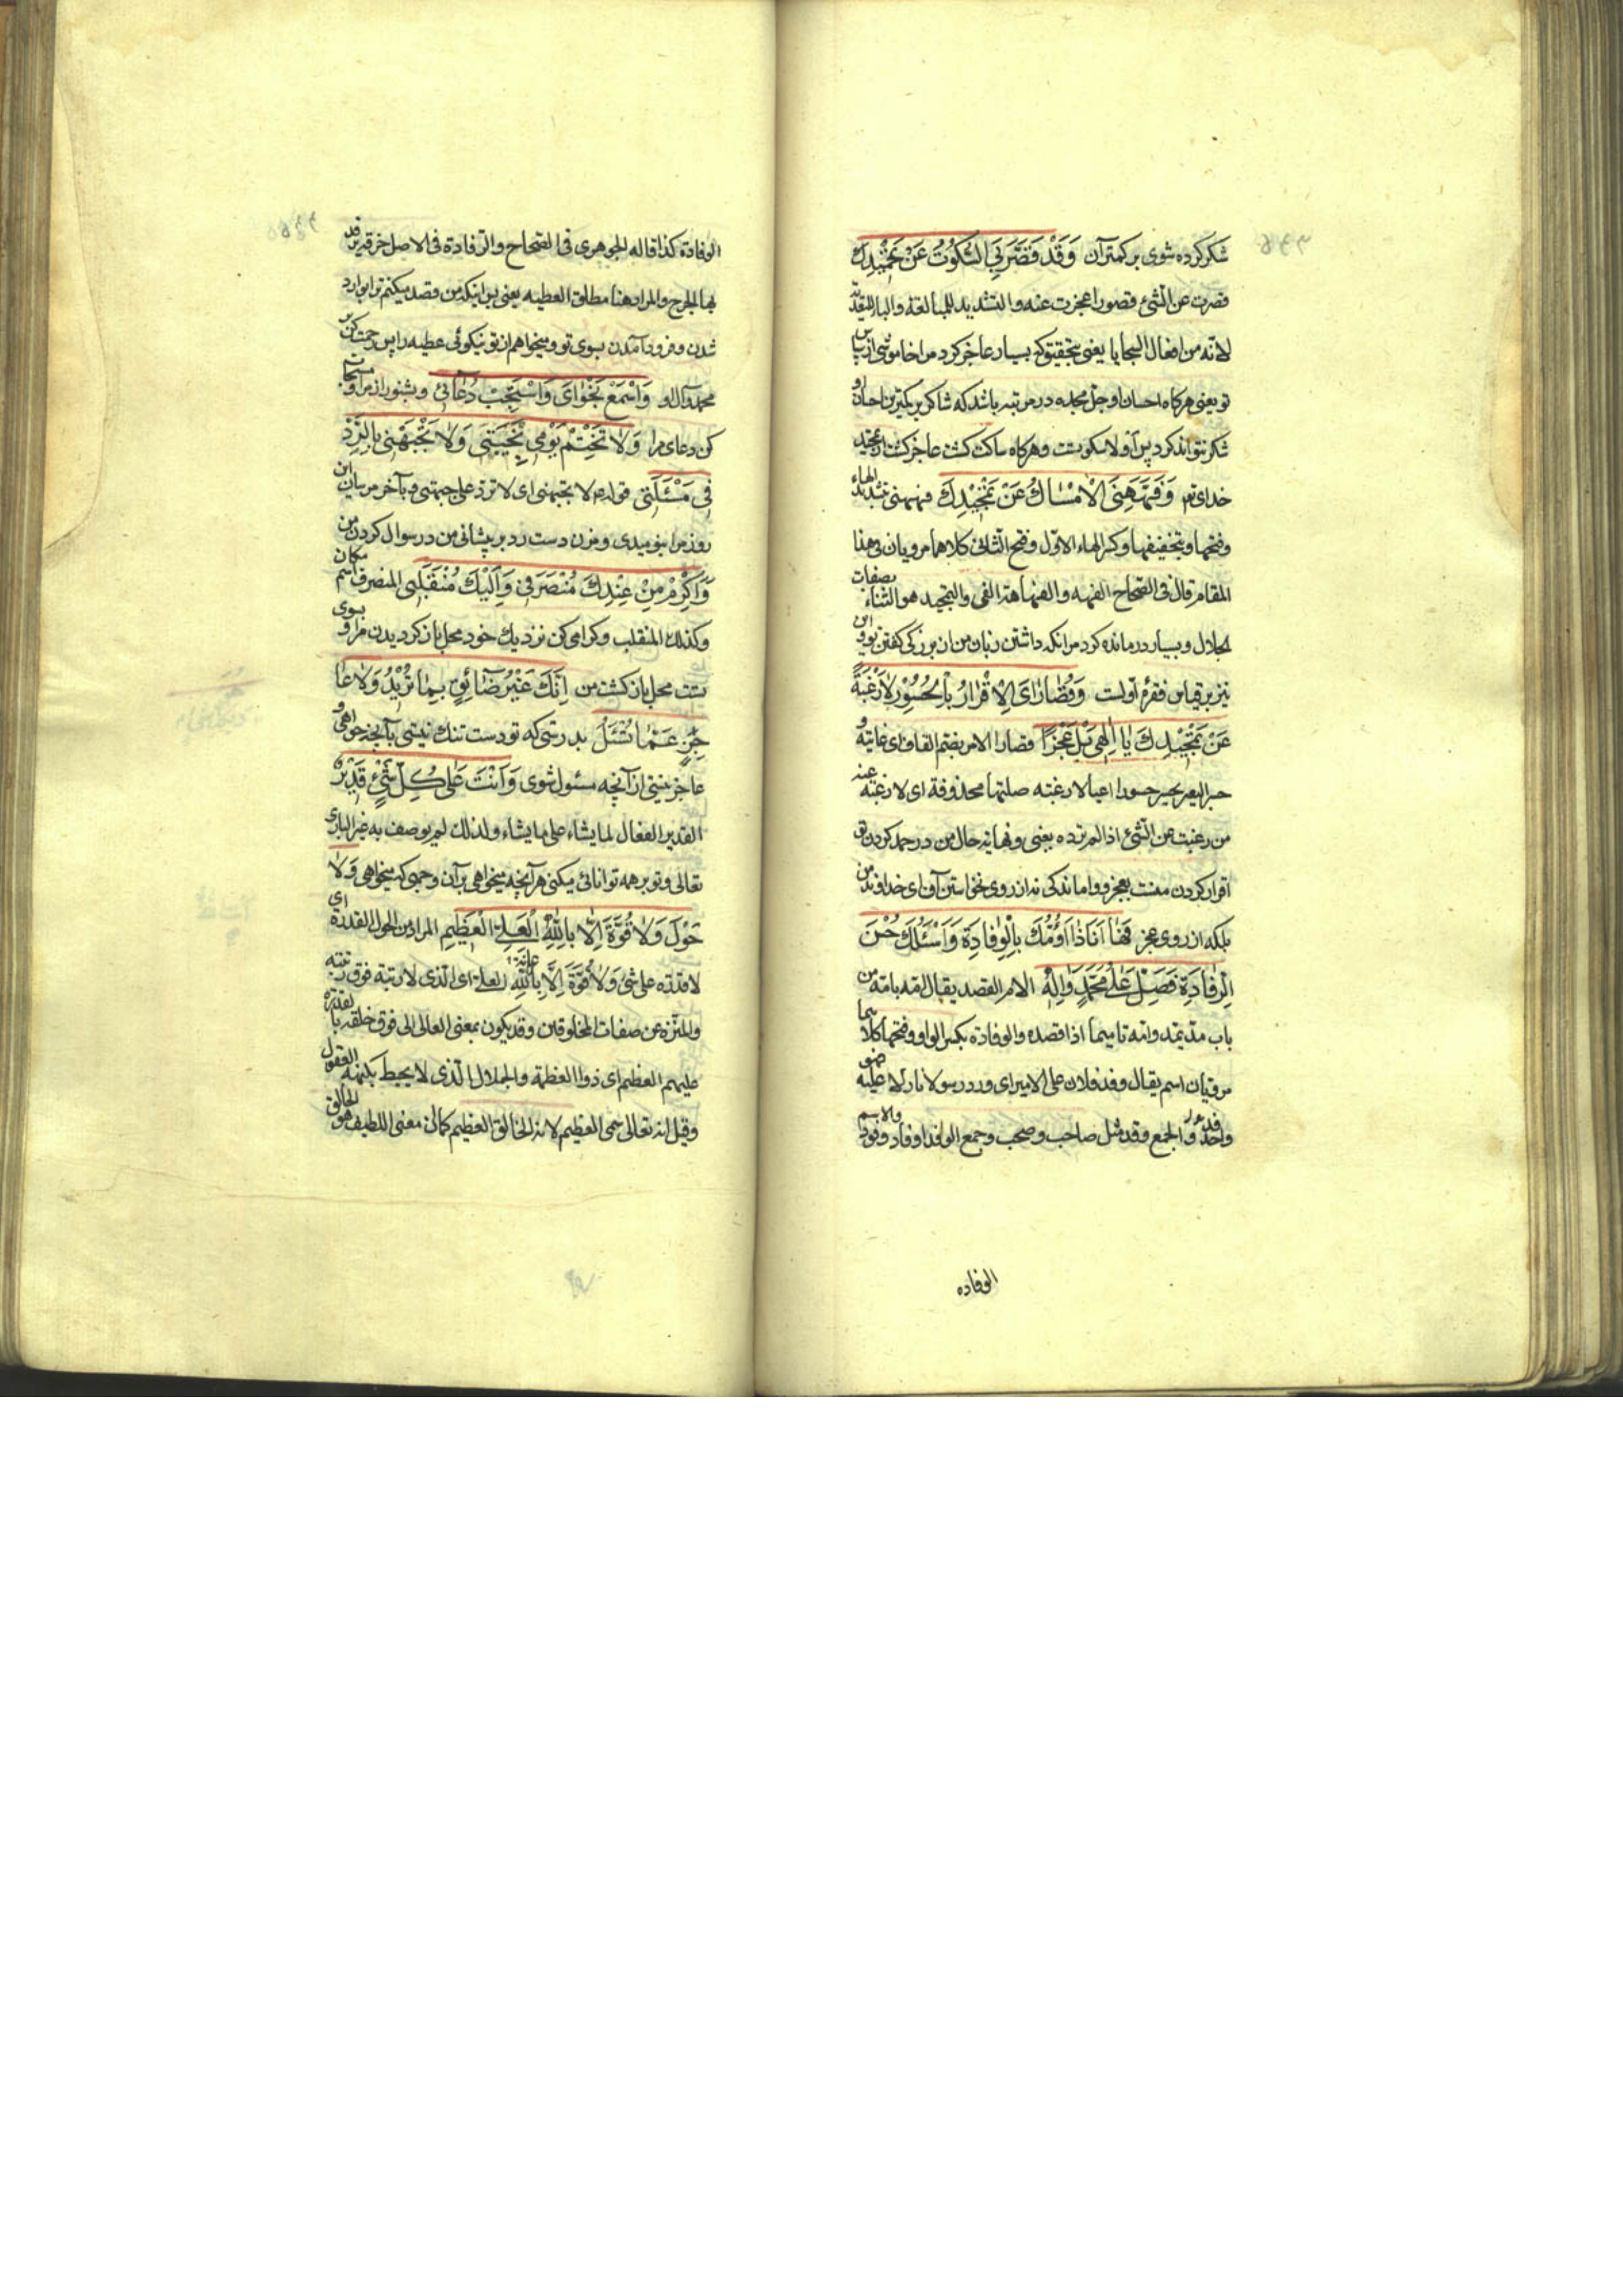 شکر کرده شوی بر کمتر آن وَقَدْ قَصَّرَ بِيَ السُّكُوتُ عَنْ تَحْمِيْدِكَ
قصرت عن الشئ قصورا عجزت عنه والتشدید للمبالغة والباء للتعدیة
لانه من افعال السجایا یعنی بتحقیق که بسیار عاجز کرد مرا خاموشی از سپاس
تو یعنی هرکاه احسان او جل مجده در مرتبه باشد که شاکر بر کمترین احسان او
شکر نتواند کرد پس اولا سکوتست و هرکاه ساکت کشت عاجز کشت از تحمید
خدای تعم وَفَهَّهَنِيَ الْاِمْسَاكُ عَنْ تَمْجِيْدِكَ فههنی بتشدید الهاء
وفتحها وبتخفیفها وکسر الهاء الاول وفتح الثانی کلاهما مرویان فی هذا
المقام قال فی الصحاح الفهه والفهاهة العی والتمجید هو الثناء بصفات
الجلال و بسیار درمانده کرد مرا نکه داشتن زبان من از بزرکی کفتن تو و این
نیز بر قیاس فقرهٔ اولست وَقُصَارَايَ الْاِقْرَارُ بِالْحُسُوْرِ لَا رَغْبَةً
عَنْ تَمْجِيْدِكَ يَا اِلٰهِي بَلْ عَجْزًا قصارا الامر بضم القاف ای غایته و
حسر البعیر یحسر حسورا اعیا لا رغبته صلتها محذوفة ای لا رغبته عنه
من رغبت عن الشئ اذا لم ترده یعنی و نهایة حال من در حمد کردن تو
اقرار کردن منست بعجز و واماندکی نه از روی نخواستن آن ای خداوند من
بلکه از روی عجز فَهَا اَنَا ذَا اَؤُمُّكَ بِالْوِفَادَةِ وَاَسْئَلُكَ حُسْنَ
الرِّفَادَةِ فَصَلِّ عَلٰى مُحَمَّدٍ وَاٰلِهٖ الام القصد یقال امّه یامّه من
باب مدّ یمدّ وامّه تامیما اذا قصده والوفادة بکسر الواو وفتحها کلاهما
مرویان اسم یقال وفد فلان علی الامیر ای ورد رسولا نازلا علیه فهو
وافد والجمع وفد مثل صاحب وصحب وجمع الوافد اوفاد ووفود والاسم
الوفاده
الوفادة کذا قاله الجوهری فی الصحاح والرفادة فی الاصل خرقة یرفد
بها الجرح والمراد هنا مطلق العطیه یعنی پس اینک من قصد میکنم ترا بوارد
شدن و فرود آمدن بسوی تو و میخواهم از تو نیکوئی عطیه را پس رحمت کن بر
محمد وآل او وَاسْمَعْ نَجْوَايَ وَاسْتَجِبْ دُعَائِي و بشنو راز مرا و مستجاب
کن دعای مرا وَلَا تَخْتِمْ يَوْمِي بِخَيْبَتِي وَلَا تَجْبَهْنِي بِالرَّدِّ
فِي مَسْئَلَتِي قوله ع لا تجبهنی ای لا ترد علی جبهتی و بآخر مرسان این
روز مرا بنومیدی و مزن دست رد بر پیشانی من در سوال کردن من
وَاَكْرِمْ مِنْ عِنْدِكَ مُنْصَرَفِي وَاِلَيْكَ مُنْقَلَبِي المنصرف اسم مکان
وکذلک المنقلب و کرامی کن نزدیک خود محل باز کردیدن مرا و بسوی
تست محل باز کشت من اِنَّكَ غَيْرُ ضَائِقٍ بِمَا تُرِيْدُ وَلَا عَا
جِزٍ عَمَّا تُسْئَلُ بدرستی که تو دست تنک نیستی بآنچه خواهی و
عاجز نیستی از آنچه مسئول شوی وَاَنْتَ عَلٰى كُلِّ شَيْءٍ قَدِيْرٌ
القدیر الفعال لما یشاء علی ما یشاء ولذلک لم یوصف به غیر الباری
تعالی و تو بر همه توانائی میکنی هر آنچه میخواهی بر آن وجهی که میخواهی وَلَا
حَوْلَ وَلَا قُوَّةَ اِلَّا بِاللّٰهِ الْعَلِيِّ الْعَظِيْمِ المراد من الحول القدرة ای
لا قدرة علی شئ وَلَا قُوَّةَ اِلَّا بِاللّٰهِ العلی ای الذی لا رتبة فوق رتبته
والمنزه عن صفات المخلوقین وقد یکون بمعنی العالی الی فوق خلقه بالقدرة
علیهم العظیم ای ذو العظمة والجلال الذی لا یحیط بکنهه العقول
وقیل انه تعالی سمی العظیم لانه الخالق العظیم کما ان معنی اللطیف هو الخالق